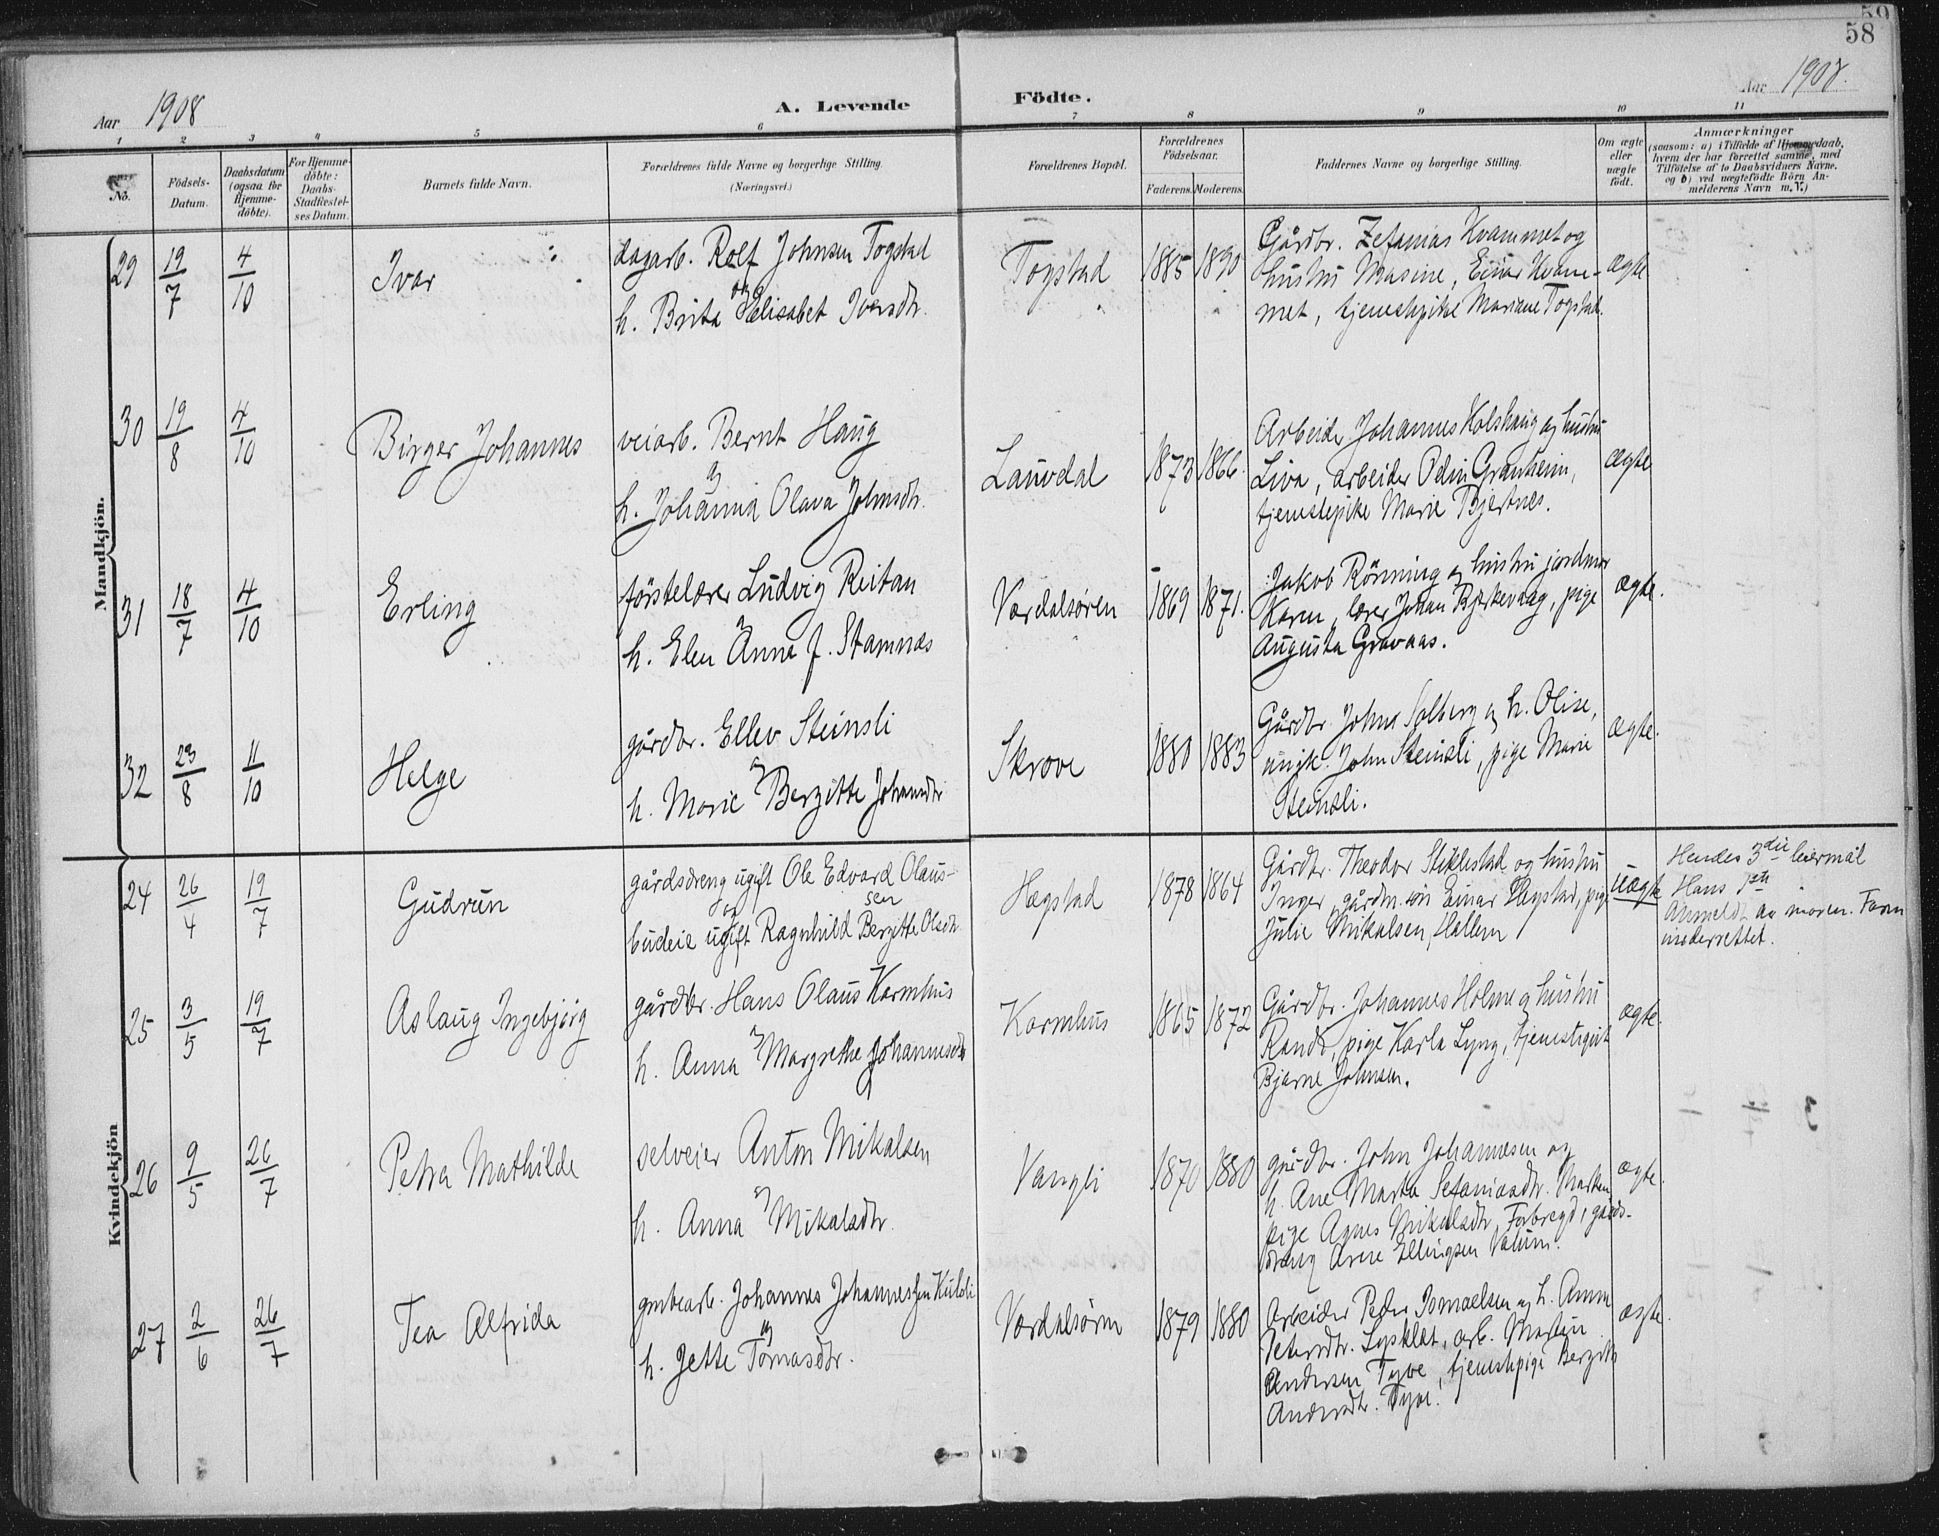 59
58
Aar 1908
A. Levende Födte.
Aar 1908.
1 2 3 4 5 6 7 8 9 10 11
No.
Födsels-Datum.
Daabsdatum (ogsaa for Hjemme-döbte).
For Hjemme-döbte: Daabs-Stadfæstel-ses Datum.
Barnets fulde Navn.
Forældrenes fulde Navne og borgerlige Stilling.
(Næringsvei.)
Forældrenes Bopæl.
Forældrenes Födselsaar.
Faderens. Moderens.
Faddernes Navne og borgerlige Stilling.
Om ægte eller uægte födt.
Anmærkninger
(saasom: a) i Tilfælde af Hjemmedaab,
hvem der har forrettet samme, med
Tilföielse af to Daabsvidners Navne.
og b) ved uægtefödte Börn An-
melderens Navn m. V.)
Mandkjön.
29 19/7 4/10 Ivar
dagarb. Rolf Johnsen Togstad
og
h. Brita Elisabet Iversdtr.
Togstad 1885 1890
Gårdbr. Zefanias Kvammet og
hustru Masine, Einar Kvam-
met, tjenestepike Mariane Togstad.
ægte
30 19/8 4/10 Birger Johannes
veiarb. Bernt Haug
og
h. Johanna Olava Johnsdtr.
Lauvdal 1873 1866.
Arbeider Johannes Kolshaug og hustru
Liva, arbeider Odin Granheim,
tjenestepike Marie Bjertnes.
ægte
31 18/7 4/10 Erling
förstelærer Ludvig Reitan
og
h. Elen Anna f. Stamnæs
Værdalsören 1869 1871.
Jakob Rönning og hustru jordmor
Karen, lærer Johan Bjerkevaag, pige
Augusta Gravaas.
ægte.
32 23/8 11/10 Helge
gårdbr. Ellev Steinsli
og
h. Marie Bergitte Johansdtr
Skrove 1880 1883
Gårdbr. Johns Solberg og h. Olise,
ungk. John Steinsli, pige Marie
Steinsli.
ægte.
Kvindekjön
24 26/4 19/7 Gudrun
gårdsdreng ugift Ole Edvard Olaus-
sen
og
budeie ugift Ragnhild Bergitte Olsdtr.
Hægstad 1878 1864
Gårdbr. Theodor Stiklestad og hustru
Inger, gårdm.sön Einar Hægstad, pige
Julie Mikalsen, Hallem
uægte
Hendes 3die leiermål
Hans 1ste
Anmeldt av moren. Faren
underrettet.
25 3/5 19/7 Aslaug Ingebjörg
gårdbr. Hans Olaus Karmhus
og
h. Anna Margrethe Johannesdtr
Karmhus 1865 1872
Gårdbr. Johannes Holme og hustru
Randi, pige Karla Lyng, tjenestegut
Bjarne Johnsen.
ægte.
26 9/5 26/7 Petra Mathilde
selveier Anton Mikalsen
og
h. Anna Mikalsdtr.
Vangli 1870 1880
gårdbr. John Johannesen og
h. Ane Marta Sefaniasdtr.
pige Agnes Mikalsdtr, Forbregd, gårds-
dreng Arne Ellingsen Valum.
ægte.
27 2/6 26/7 Tea Alfrida
grubearb. Johannes Johannessen Kulsli
og
h. Jette Tomasdtr.
Værdalsören 1879 1880
Arbeider Peder Ismaelsen og h. Anna
Petersdtr. arb. Martin
Andersen Tyve, tjenestepige Bergitte
Andersdtr. Tyve.
ægte.